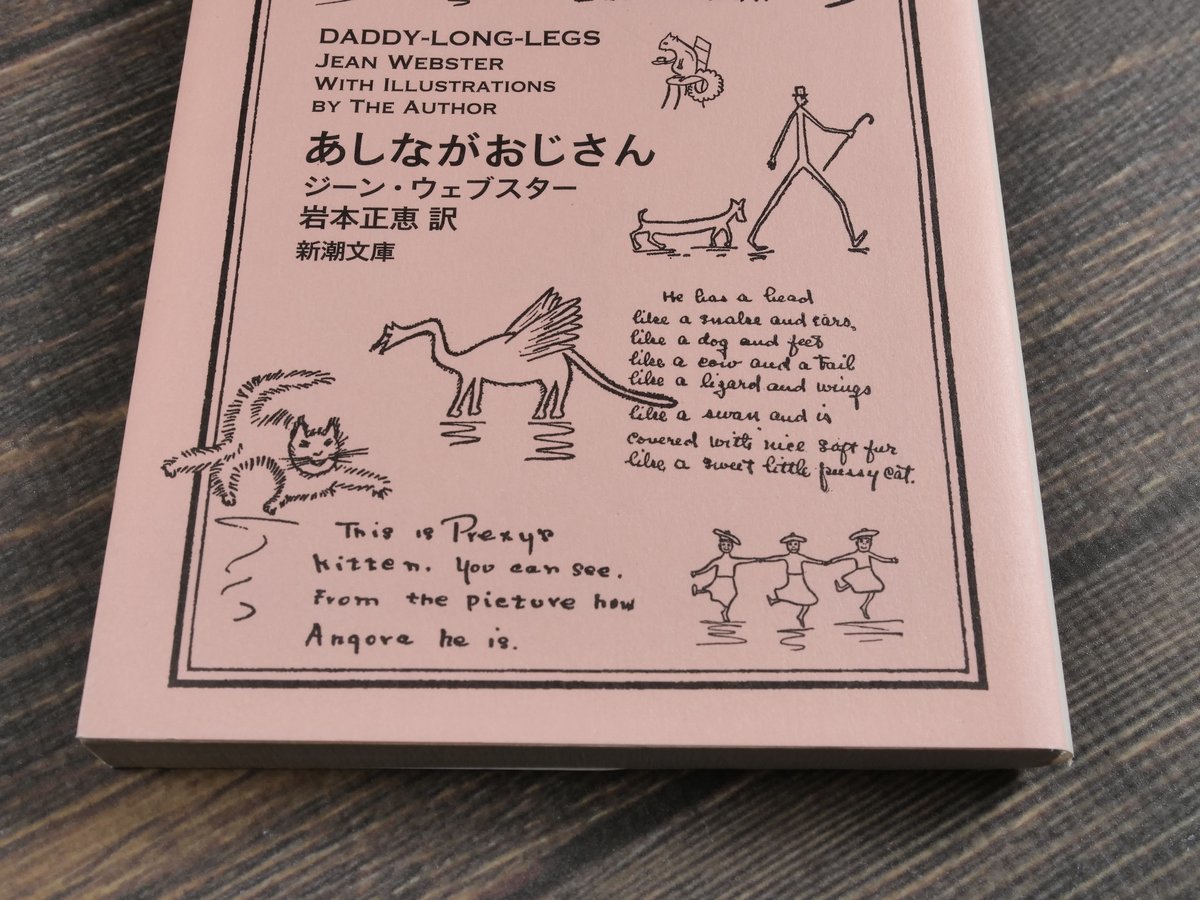 DADDY-LONG-LEGS
JEAN WEBSTER
WITH ILLUSTRATIONS
BY THE AUTHOR
あしながおじさん
ジーン・ウェブスター
岩本正恵 訳
新潮文庫
He has a head
like a snake and ears
like a dog and feet
like a cow and a tail
like a lizard and wings
like a swan and is
covered with nice soft fur
like a sweet little pussy cat.
This is Prexy's
kitten. You can see.
From the picture how
Angora he is.